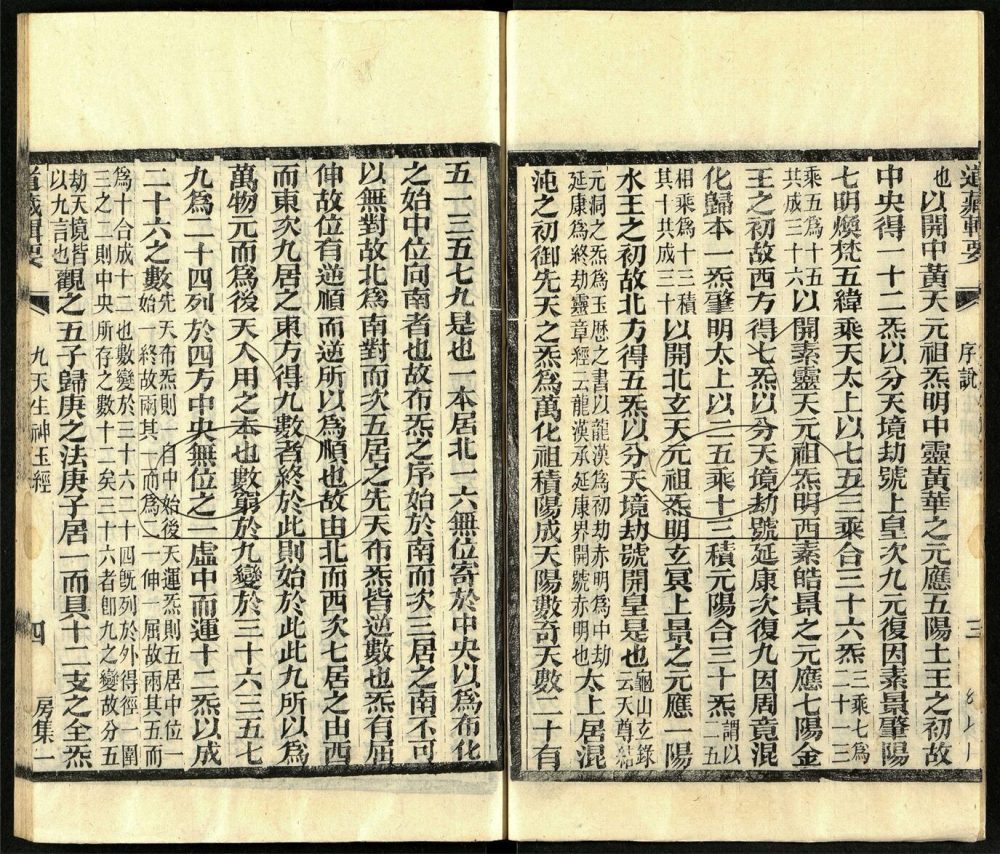 道藏輯要
序說
三
也以開中黃天元祖炁明中靈黃華之元應五陽土王之初故
中央得一十二炁以分天境劫號上皇次九元復因素景肇陽
七明爕梵五緯乘天太上以七五三乘合三十六炁三乘七為二十一三
乘五為十五共成三十六以開素靈天元祖炁明西素皓景之元應七陽金
王之初故西方得七炁以分天境劫號延康次復九因周竟混
化歸本一炁肇明太上以二五乘十三積元陽合三十炁謂以二五
相乘為十三積其十共成三十以開北玄天元祖炁明玄冥上景之元應一陽
水王之初故北方得五炁以分天境劫號開皇是也龜山玄錄云天尊結
元洞之炁為玉歷之書以龍漢為初劫赤明為中劫延康為終劫靈章經云龍漢承延康界開號赤明也太上居混
沌之初御先天之炁為萬化祖積陽成天陽數奇天數二十有
五一三五七九是也一本居北一六無位寄於中央以為布化
之始中位向南者也故布炁之序始於南而次三居之南不可
以無對故北為南對而次五居之先天布炁皆逆數也炁有屈
伸故位有逆順而逆所以為順也故由北而西次七居之由西
而東次九居之東方得九數者終於此則始於此此九所以為
萬物元而為後天入用之本也數窮於九變於三十六三五七
九為二十四列於四方中央無位之一虛中而運十二炁以成
二十六之數先天布炁則一自中始後天運炁則五居中位一始一終故兩其一而為二一伸一屈故兩其五而
為十合成十二也數變於三十六二十四旣列於外得徑一圍三之一則中央所存之數十二矣三十六者卽九之變故分五
劫天境皆以九言也觀之五子歸庚之法庚子居一而具十二支之全炁
道藏輯要
九天生神玉經
四
房集一